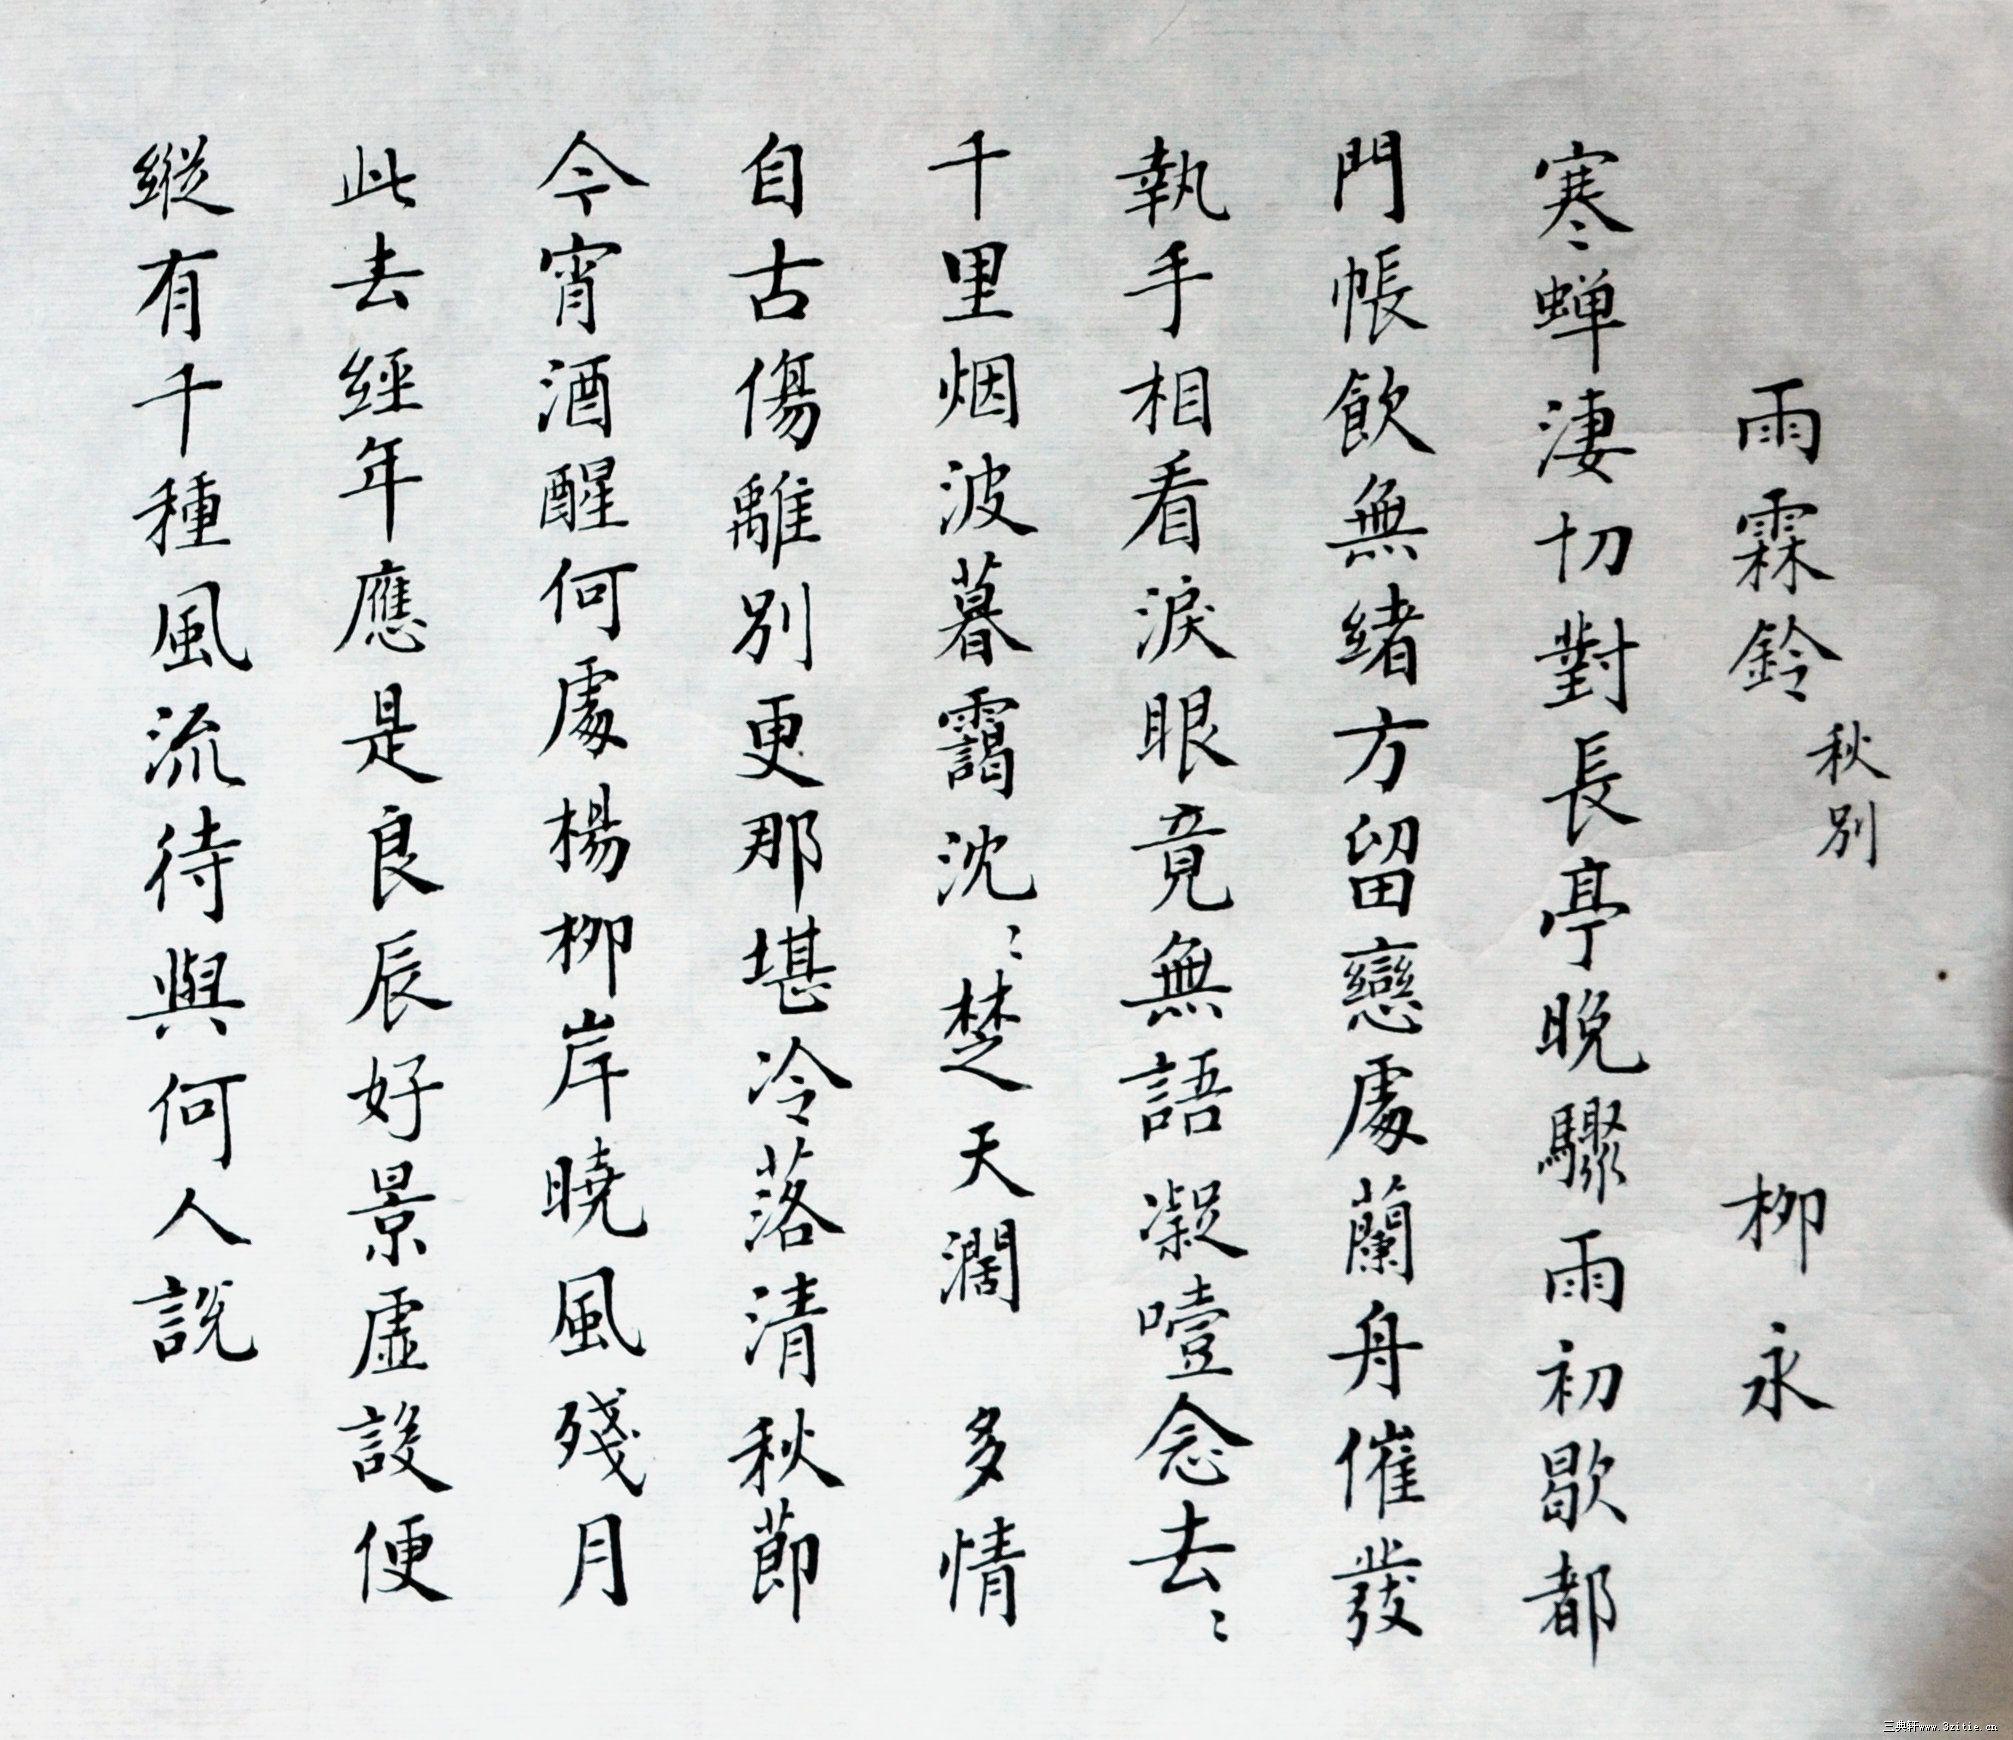 雨霖鈴 秋別 柳永
寒蝉淒切對長亭晚驟雨初歇都
門帳飲無緒方留戀處蘭舟催發
執手相看淚眼竟無語凝噎念去〻
千里烟波暮靄沈〻楚天濶 多情
自古傷離別更那堪冷落清秋節
今宵酒醒何處楊柳岸曉風殘月
此去經年應是良辰好景虛設便
縱有千種風流待與何人說
三典轩www.3zitie.cn